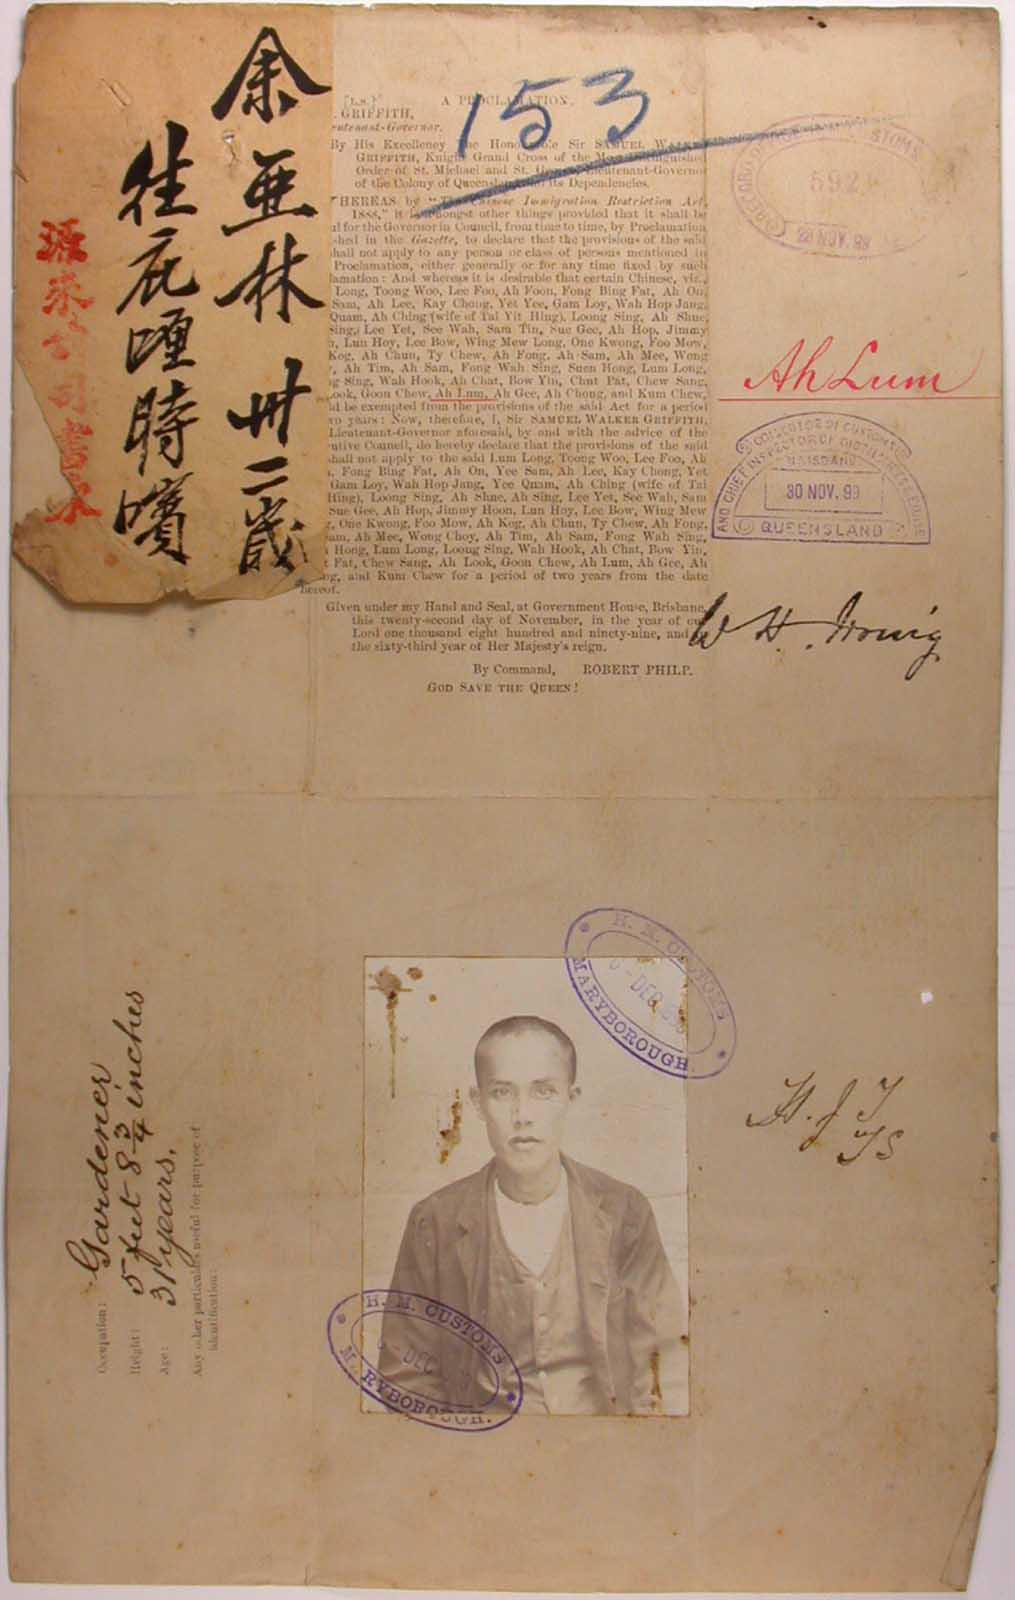 余亜林 卅二歲
往庇𠺘時嚹
源泰公司書柬
153
[L.S.] A PROCLAMATION,
. GRIFFITH,
eutenant-Governor.
By His Excellency the Honourable Sir SAMUEL WALKER
GRIFFITH, Knight Grand Cross of the Most Distinguished
Order of St. Michael and St. George, Lieutenant-Governor
of the Colony of Queensland and its Dependencies.
HEREAS by "The Chinese Immigration Restriction Act,
1888," it is amongst other things provided that it shall be
ul for the Governor in Council, from time to time, by Proclamation
shed in the Gazette, to declare that the provisions of the said
hall not apply to any person or class of persons mentioned in
Proclamation, either generally or for any time fixed by such
lamation: And whereas it is desirable that certain Chinese, viz.,
Long, Toong Woo, Lee Foo, Ah Foon, Fong Bing Fat, Ah On,
Sam, Ah Lee, Kay Chong, Yet Yee, Gam Loy, Wah Hop Jang,
Quam, Ah Ching (wife of Tai Yit Hing), Loong Sing, Ah Shue,
Sing, Lee Yet, See Wah, Sam Tin, Sue Gee, Ah Hop, Jimmy
, Lun Hoy, Lee Bow, Wing Mew Long, One Kwong, Foo Mow,
Kog, Ah Chun, Ty Chew, Ah Fong, Ah Sam, Ah Mee, Wong
, Ah Tim, Ah Sam, Fong Wah Sing, Suen Hong, Lum Long,
g Sing, Wah Hook, Ah Chat, Bow Yin, Chut Fat, Chew Sang,
ook, Goon Chew, Ah Lum, Ah Gee, Ah Chong, and Kum Chew,
ld be exempted from the provisions of the said Act for a period
wo years: Now, therefore, I, Sir SAMUEL WALKER GRIFFITH,
Lieutenant-Governor aforesaid, by and with the advice of the
utive Council, do hereby declare that the provisions of the said
shall not apply to the said Lum Long, Toong Woo, Lee Foo, Ah
, Fong Bing Fat, Ah On, Yee Sam, Ah Lee, Kay Chong, Yet
Gam Loy, Wah Hop Jang, Yee Quam, Ah Ching (wife of Tai
Hing), Loong Sing, Ah Shue, Ah Sing, Lee Yet, See Wah, Sam
Sue Gee, Ah Hop, Jimmy Hoon, Lun Hoy, Lee Bow, Wing Mew
g, One Kwong, Foo Mow, Ah Kog, Ah Chun, Ty Chew, Ah Fong,
am, Ah Mee, Wong Choy, Ah Tim, Ah Sam, Fong Wah Sing,
Hong, Lum Long, Loong Sing, Wah Hook, Ah Chat, Bow Yin,
t Fat, Chew Sang, Ah Look, Goon Chew, Ah Lum, Ah Gee, Ah
ng, and Kum Chew for a period of two years from the date
hereof.
Given under my Hand and Seal, at Government House, Brisbane,
this twenty-second day of November, in the year of our
Lord one thousand eight hundred and ninety-nine, and in
the sixty-third year of Her Majesty's reign.
By Command, ROBERT PHILP.
GOD SAVE THE QUEEN!
RECORD CUSTOMS
592
NOV. 99
Ah Lum
COLLECTOR OF CUSTOMS
AND CHIEF INSPECTOR OF DISTILLERIES & EXCISE
BRISBANE
30 NOV. 99
QUEENSLAND
W H.
H. M. CUSTOMS
DEC
MARYBOROUGH.
H. J. T
TS
H. M. CUSTOMS
DEC
MARYBOROUGH.
Occupation: Gardener
Height: 5 feet 8 3/4 inches
Age: 31 years.
Any other particulars useful for purpose of
identification: